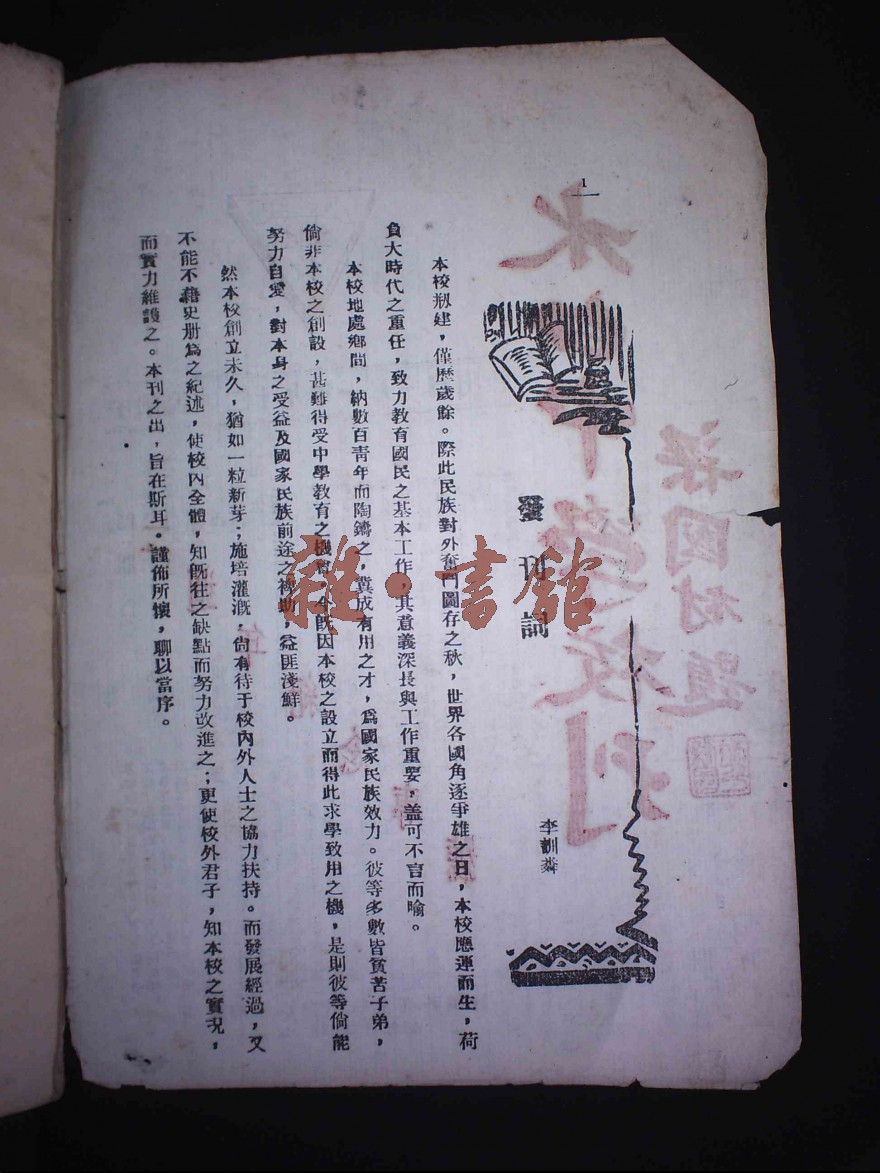 1
發刊詞
李訓粦
本校剏建，僅歷歲餘。際此民族對外奮鬥圖存之秋，世界各國角逐爭雄之日，本校應運而生，荷
負大時代之重任，致力教育國民之基本工作，其意義深長與工作重要，蓋可不言而喻。
本校地處鄉間，納數百青年而陶鑄之，冀成有用之才，爲國家民族效力。彼等多數皆貧苦子弟，
倘非本校之創設，甚難得受中學教育之機會，今旣因本校之設立而得此求學致用之機，是則彼等倘能
努力自愛，對本身之受益及國家民族前途之裨助，益匪淺鮮。
然本校創立未久，猶如一粒新芽；施培灌漑，尙有待于校內外人士之協力扶持。而發展經過，又
不能不藉史册爲之紀述，使校內全體，知旣往之缺點而努力改進之；更使校外君子，知本校之實況，
而實力維護之。本刊之出，旨在斯耳。謹佈所懷，聊以當序。
雜·書館
梁國材題